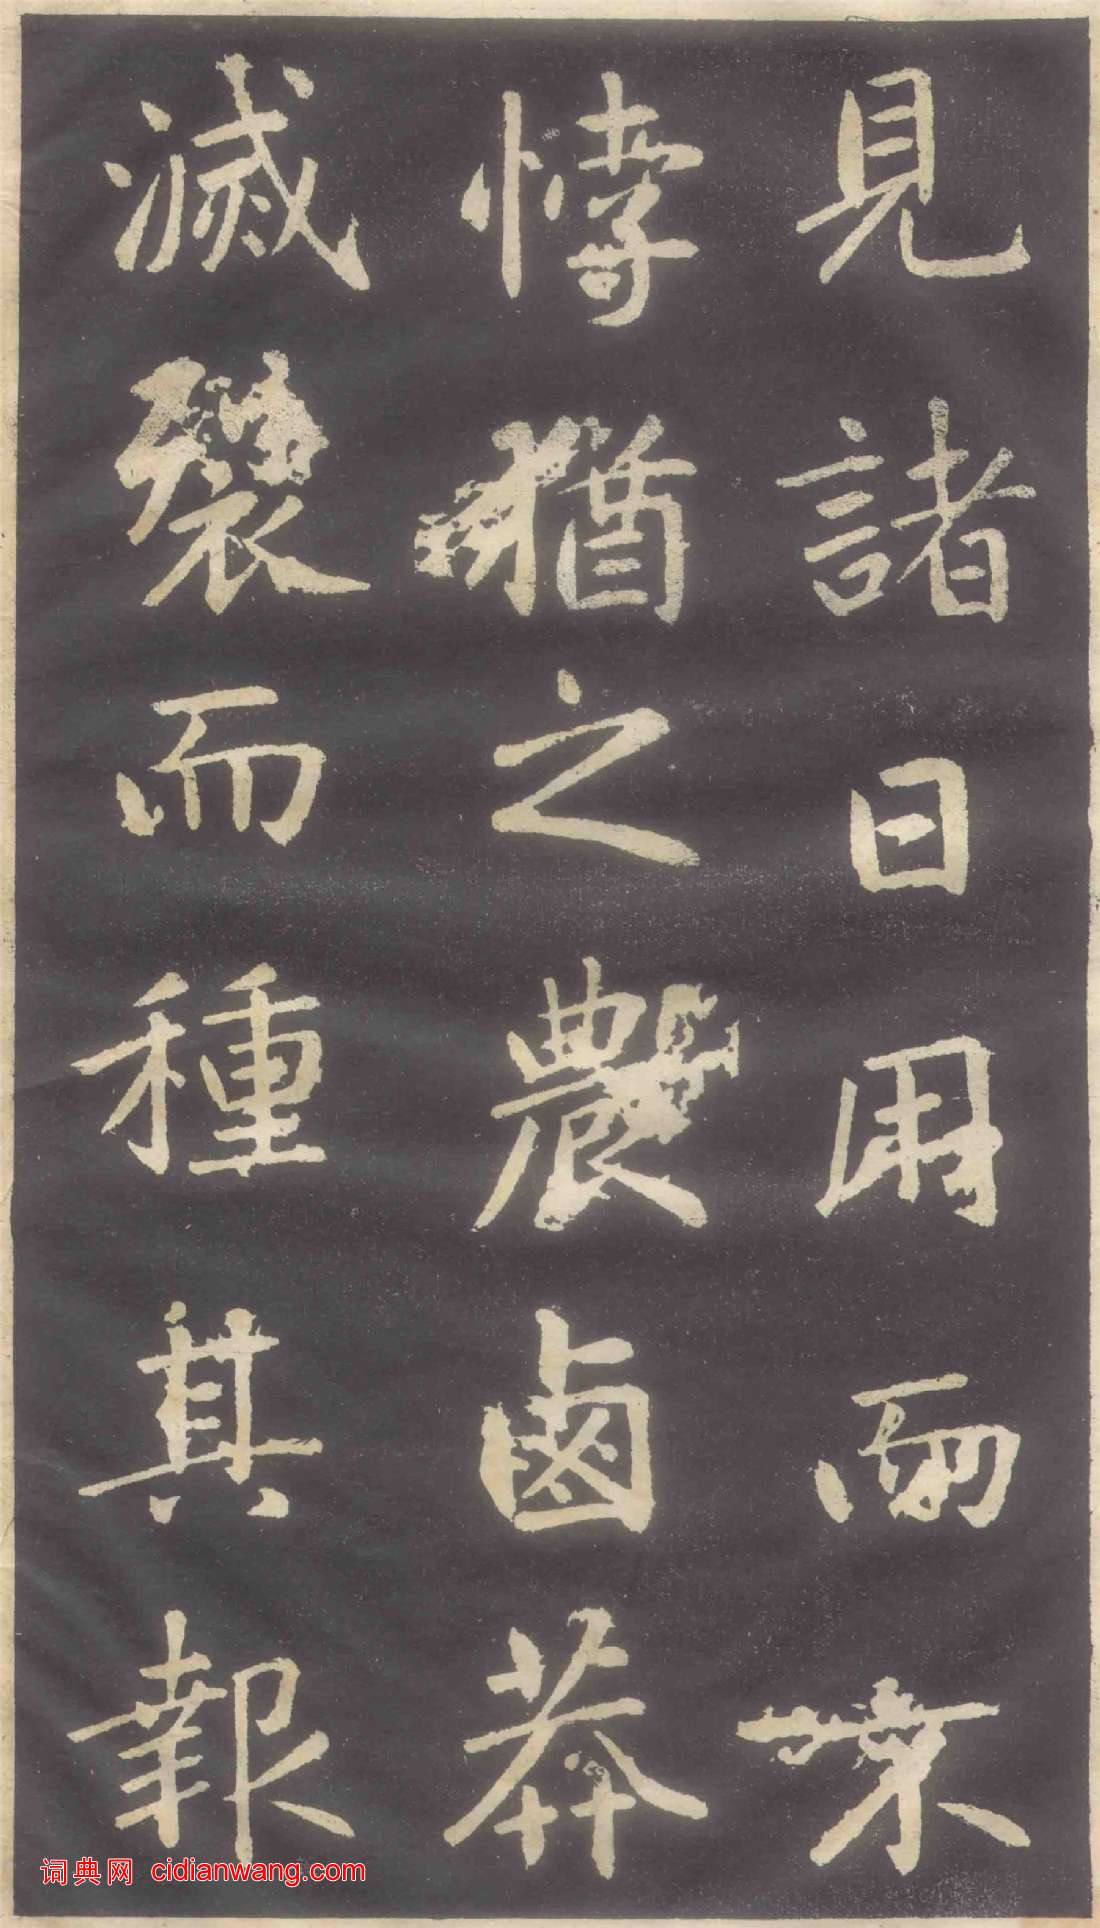 見諸日用而不
悖猶之農鹵莽
滅裂而種其報
词典网 cidianwang.com